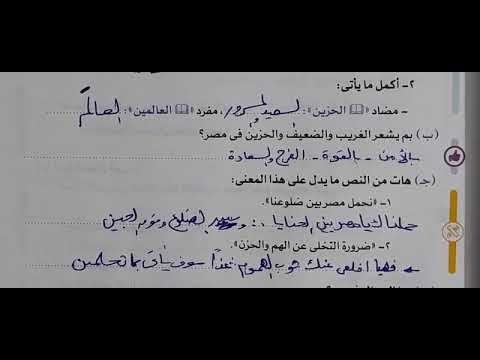 ٢- أكمل ما يأتى:
- مضاد «الحزين»: السعيد المسرور، مفرد «العالمين»: العالم
(ب) بم يشعر الغريب والضعيف والحزين فى مصر؟
بالأمن - بالقوة - الفرح والسعادة
(جـ) هات من النص ما يدل على هذا المعنى:
١- «نحمل مصر بين ضلوعنا».
حملناك يا مصر بين الحنايا وبين الضلوع وفوق الجبين
٢- «ضرورة التخلى عن الهم والحزن».
فهيا اخلعى عنك ثوب الهموم غدًا سوف يأتى بما تحلمين